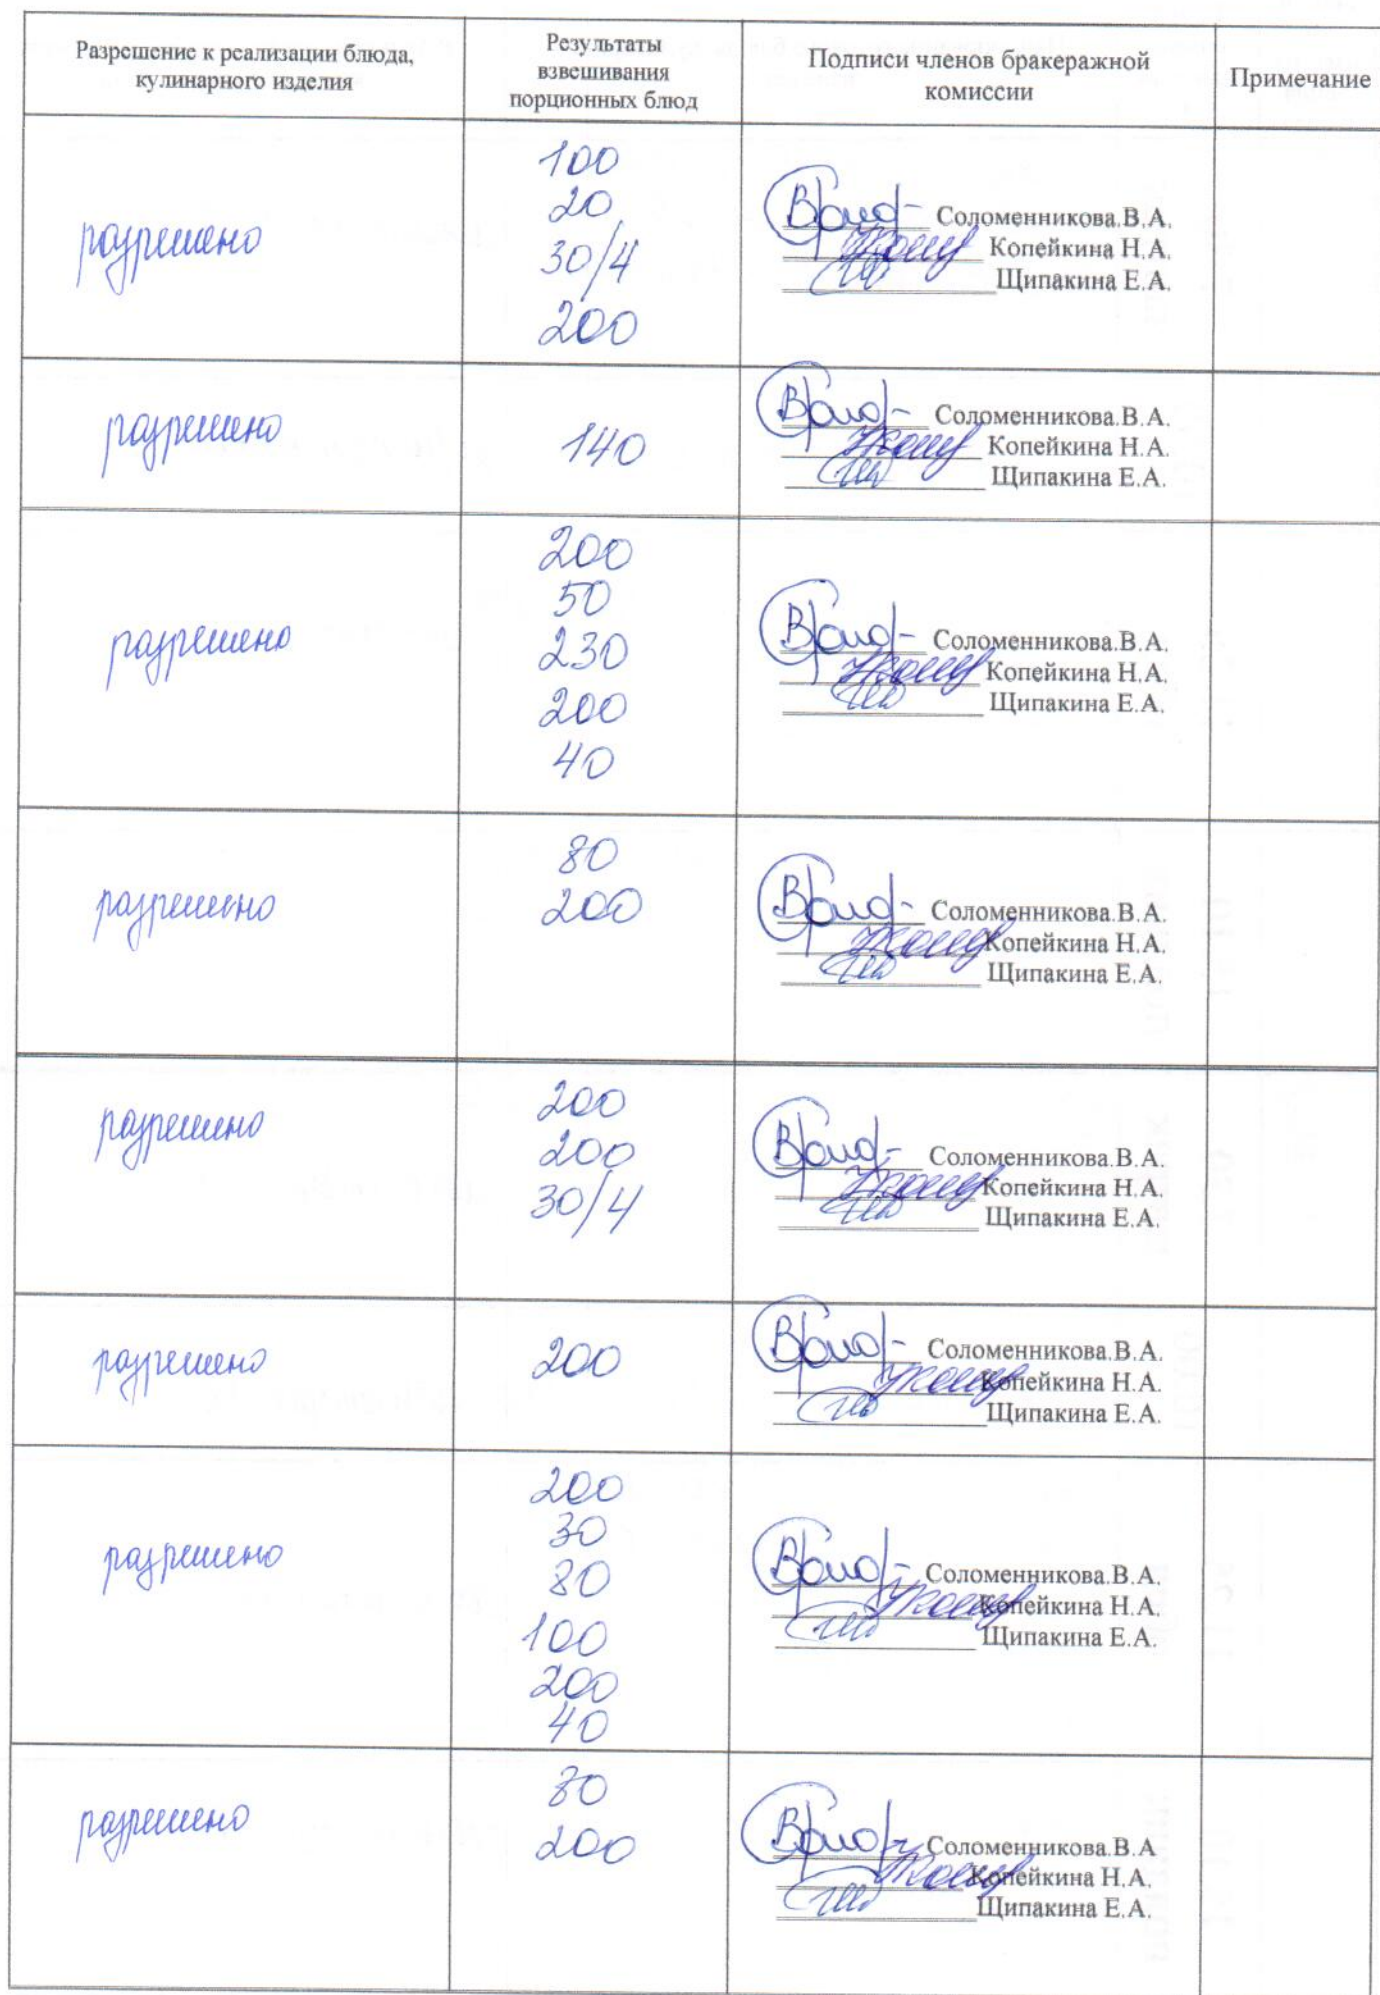 Разрешение к реализации блюда,
кулинарного изделия
Результаты
взвешивания
порционных блюд
Подписи членов бракеражной
комиссии
Примечание
разрешено
100
20
30/4
200
Соломенникова.В.А.
Копейкина Н.А.
Щипакина Е.А.
разрешено
140
Соломенникова.В.А.
Копейкина Н.А.
Щипакина Е.А.
разрешено
200
50
230
200
40
Соломенникова.В.А.
Копейкина Н.А.
Щипакина Е.А.
разрешено
80
200
Соломенникова.В.А.
Копейкина Н.А.
Щипакина Е.А.
разрешено
200
200
30/4
Соломенникова.В.А.
Копейкина Н.А.
Щипакина Е.А.
разрешено
200
Соломенникова.В.А.
Копейкина Н.А.
Щипакина Е.А.
разрешено
200
30
80
100
200
40
Соломенникова.В.А.
Копейкина Н.А.
Щипакина Е.А.
разрешено
80
200
Соломенникова.В.А
Копейкина Н.А.
Щипакина Е.А.